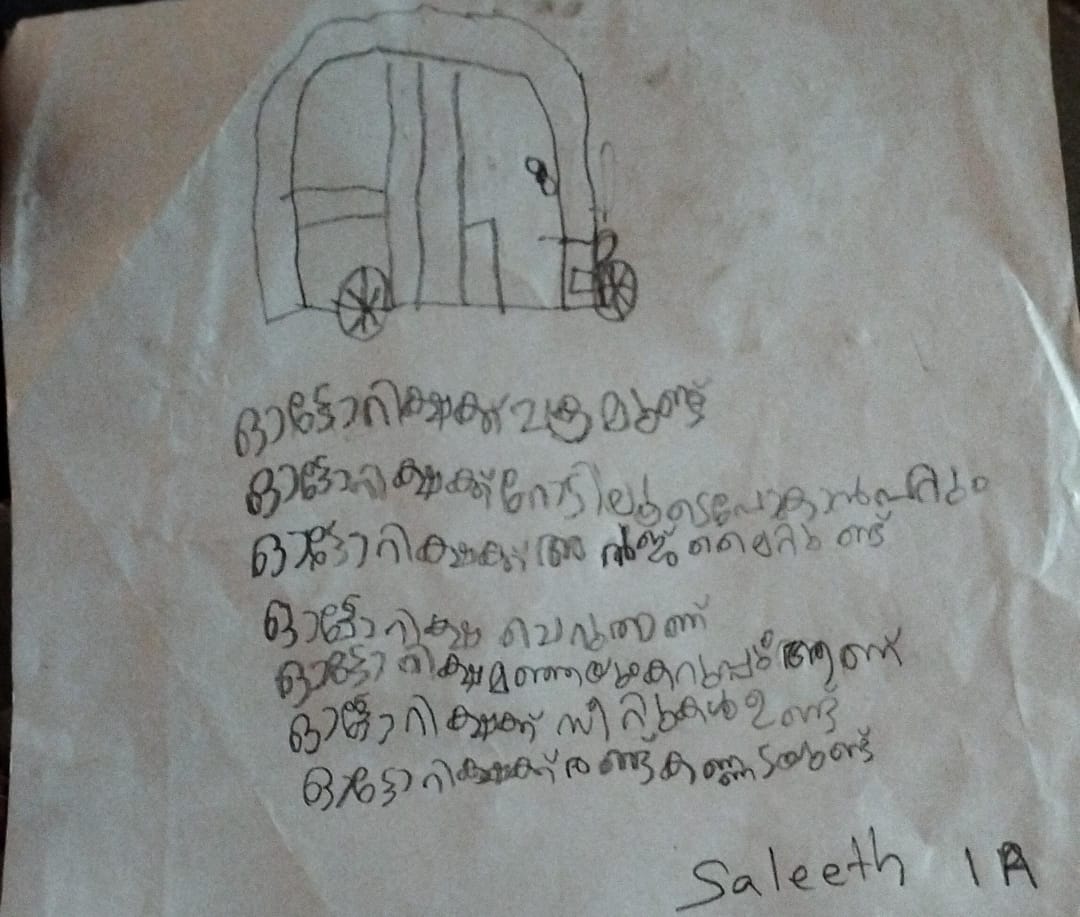 ഓട്ടോറിക്ഷക്ക് ചക്രമുണ്ട്
ഓട്ടോറിക്ഷക്ക് റോട്ടിലൂടെ പോകാൻ പറ്റും
ഓട്ടോറിക്ഷക്ക് ലൈറ്റുണ്ട്
ഓട്ടോറിക്ഷ ചെറുതാണ്
ഓട്ടോറിക്ഷ മഞ്ഞയും കറുപ്പും ആണ്
ഓട്ടോറിക്ഷക്ക് സീറ്റുകൾ ഉണ്ട്
ഓട്ടോറിക്ഷക്ക് രണ്ട് കണ്ണടയുണ്ട്
Saleeth 1A